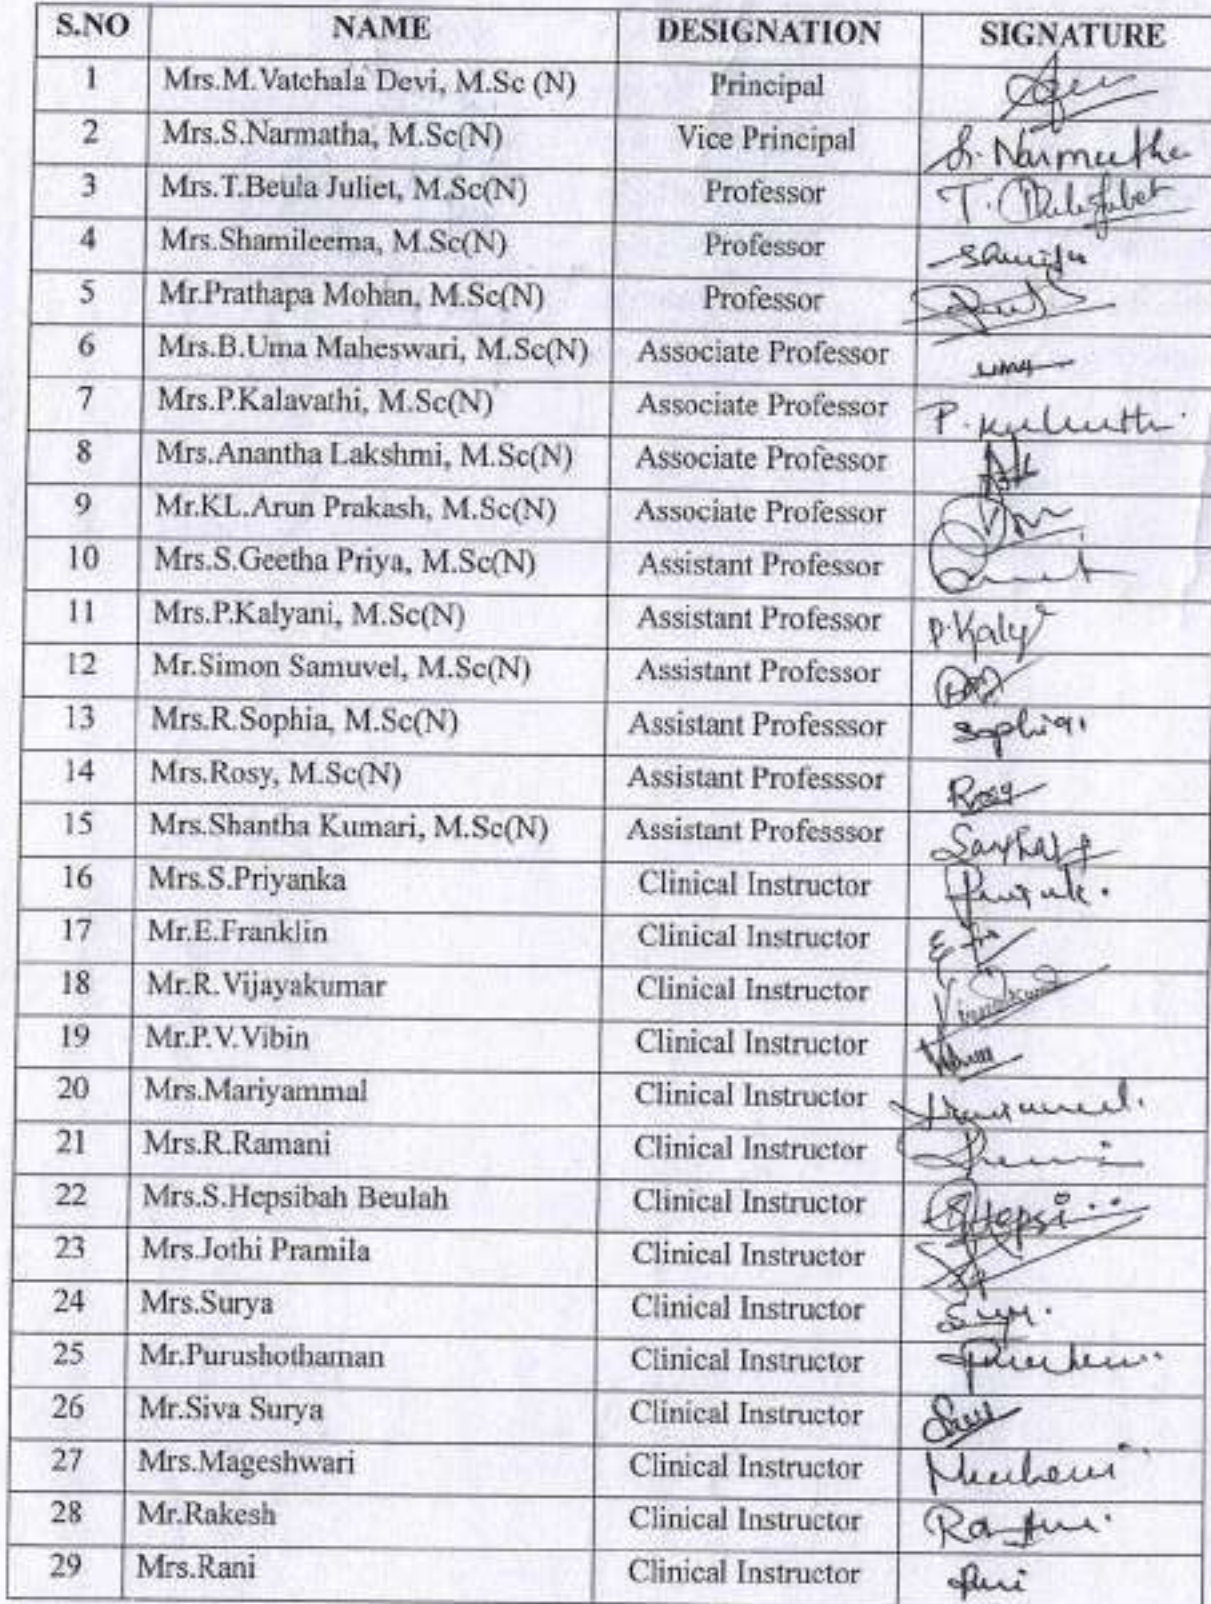 S.NO NAME DESIGNATION SIGNATURE
1 Mrs.M.Vatchala Devi, M.Sc (N) Principal
2 Mrs.S.Narmatha, M.Sc(N) Vice Principal S. Narmatha
3 Mrs.T.Beula Juliet, M.Sc(N) Professor
4 Mrs.Shamileema, M.Sc(N) Professor
5 Mr.Prathapa Mohan, M.Sc(N) Professor
6 Mrs.B.Uma Maheswari, M.Sc(N) Associate Professor uma
7 Mrs.P.Kalavathi, M.Sc(N) Associate Professor
8 Mrs.Anantha Lakshmi, M.Sc(N) Associate Professor
9 Mr.KL.Arun Prakash, M.Sc(N) Associate Professor
10 Mrs.S.Geetha Priya, M.Sc(N) Assistant Professor
11 Mrs.P.Kalyani, M.Sc(N) Assistant Professor P.Kaly
12 Mr.Simon Samuvel, M.Sc(N) Assistant Professor
13 Mrs.R.Sophia, M.Sc(N) Assistant Professsor Sophia
14 Mrs.Rosy, M.Sc(N) Assistant Professsor Rosy
15 Mrs.Shantha Kumari, M.Sc(N) Assistant Professsor
16 Mrs.S.Priyanka Clinical Instructor
17 Mr.E.Franklin Clinical Instructor
18 Mr.R.Vijayakumar Clinical Instructor
19 Mr.P.V.Vibin Clinical Instructor
20 Mrs.Mariyammal Clinical Instructor
21 Mrs.R.Ramani Clinical Instructor
22 Mrs.S.Hepsibah Beulah Clinical Instructor Hepsi
23 Mrs.Jothi Pramila Clinical Instructor
24 Mrs.Surya Clinical Instructor
25 Mr.Purushothaman Clinical Instructor
26 Mr.Siva Surya Clinical Instructor
27 Mrs.Mageshwari Clinical Instructor
28 Mr.Rakesh Clinical Instructor
29 Mrs.Rani Clinical Instructor